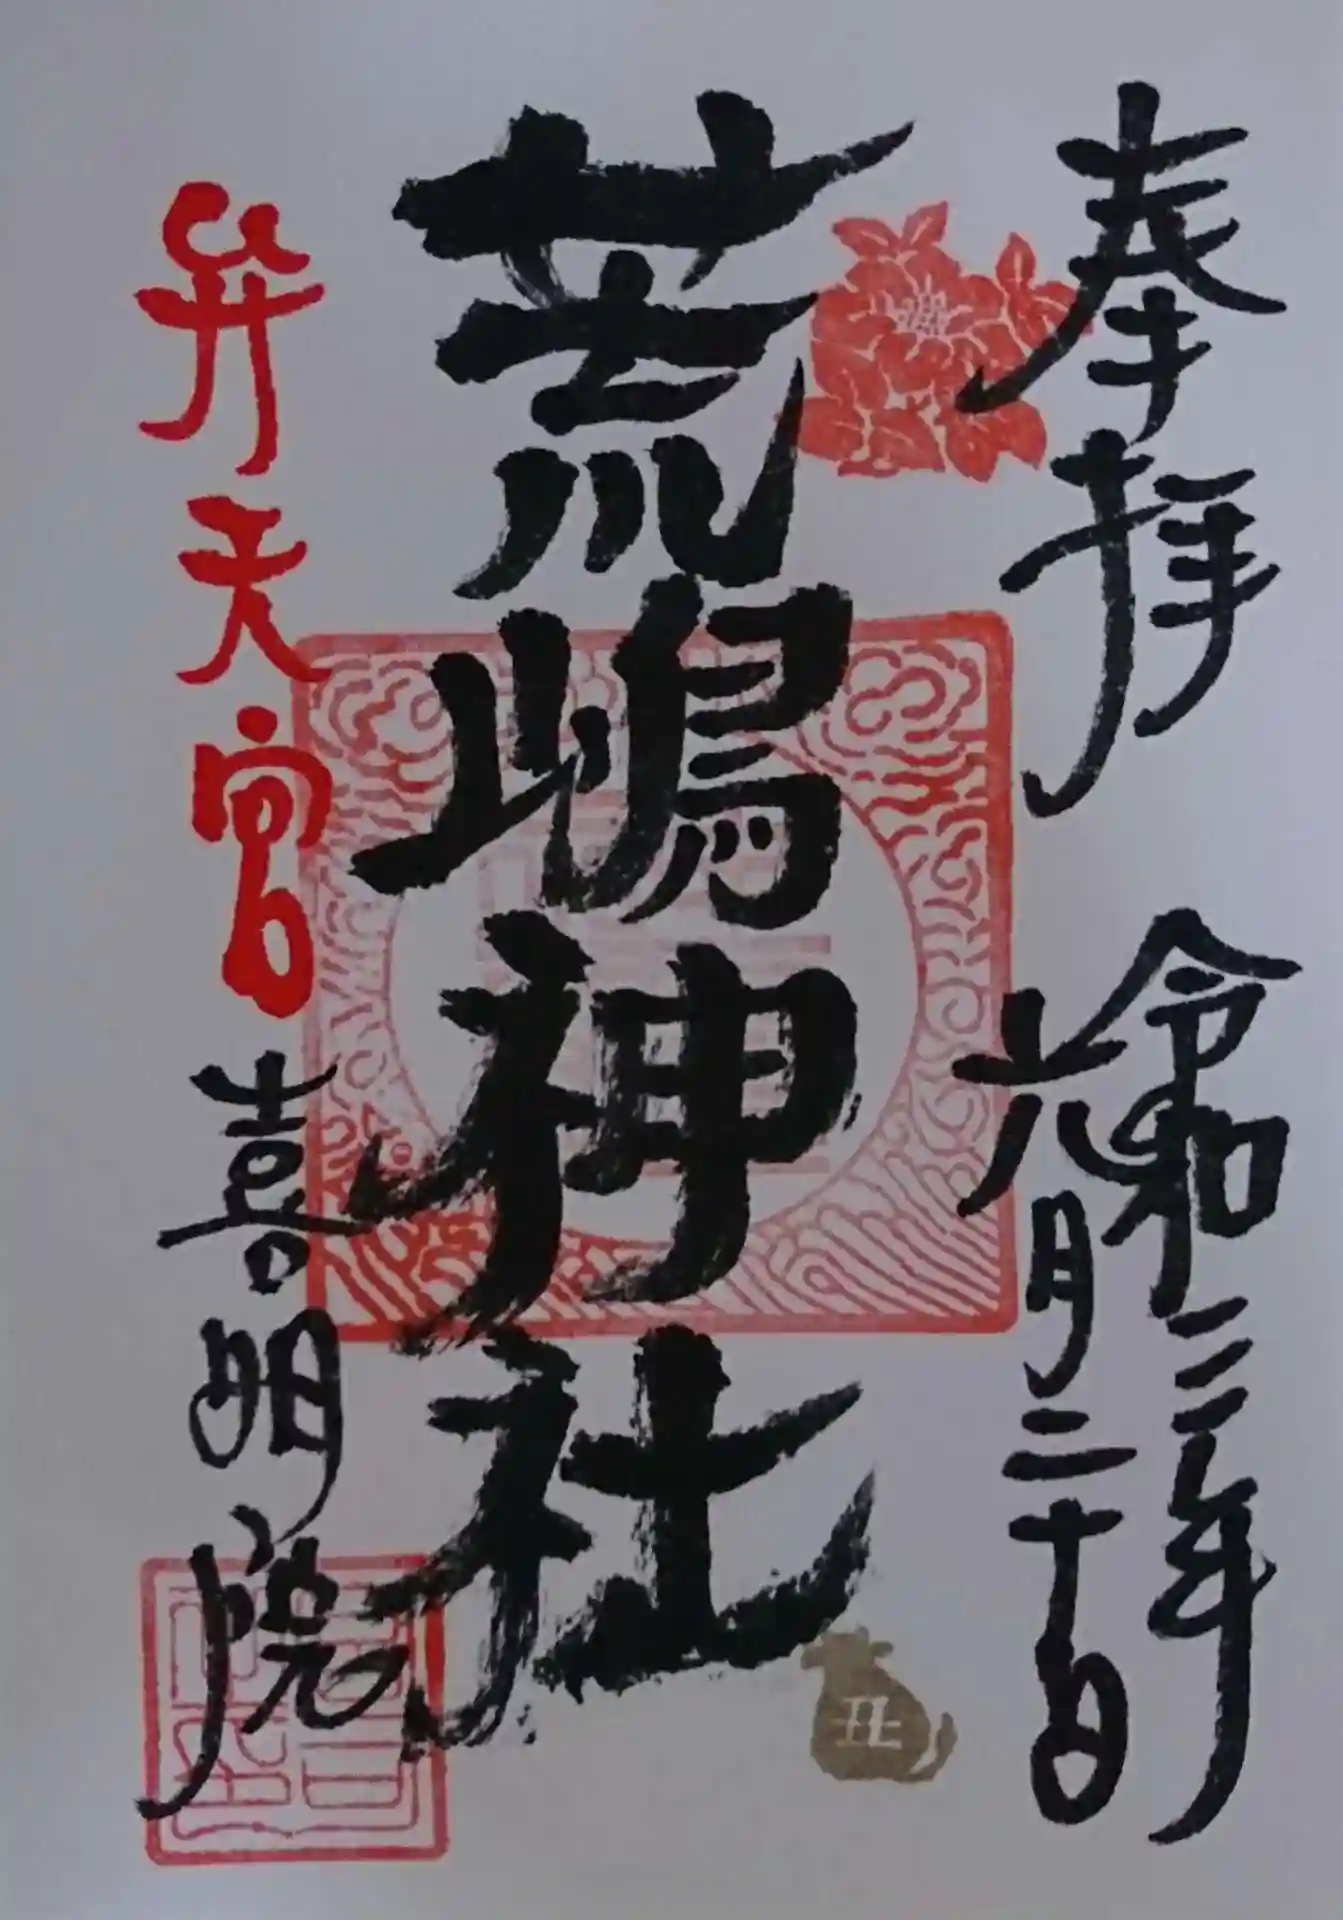 奉拝
令和三年
六月二十日
荒嶋神社
丑
弁天宮
喜明院